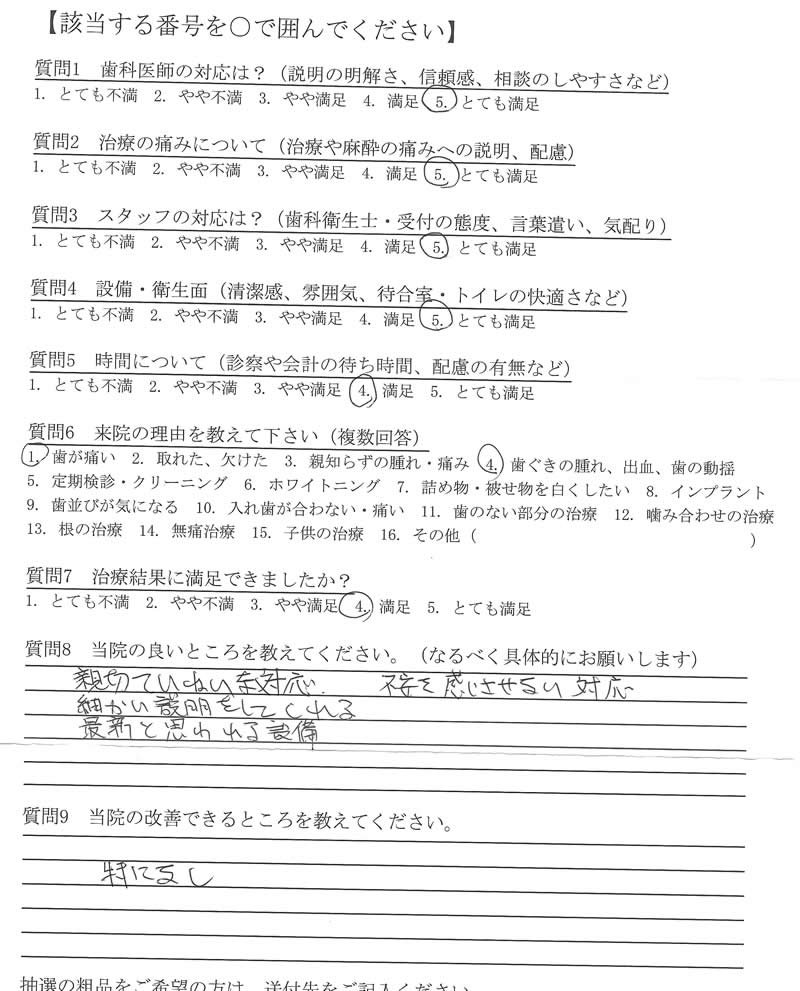 【該当する番号を○で囲んでください】
質問1 歯科医師の対応は？（説明の明解さ、信頼感、相談のしやすさなど）
1. とても不満 2. やや不満 3. やや満足 4. 満足 5. とても満足
質問2 治療の痛みについて（治療や麻酔の痛みへの説明、配慮）
1. とても不満 2. やや不満 3. やや満足 4. 満足 5. とても満足
質問3 スタッフの対応は？（歯科衛生士・受付の態度、言葉遣い、気配り）
1. とても不満 2. やや不満 3. やや満足 4. 満足 5. とても満足
質問4 設備・衛生面（清潔感、雰囲気、待合室・トイレの快適さなど）
1. とても不満 2. やや不満 3. やや満足 4. 満足 5. とても満足
質問5 時間について（診察や会計の待ち時間、配慮の有無など）
1. とても不満 2. やや不満 3. やや満足 4. 満足 5. とても満足
質問6 来院の理由を教えて下さい（複数回答）
1. 歯が痛い 2. 取れた、欠けた 3. 親知らずの腫れ・痛み 4. 歯ぐきの腫れ、出血、歯の動揺
5. 定期検診・クリーニング 6. ホワイトニング 7. 詰め物・被せ物を白くしたい 8. インプラント
9. 歯並びが気になる 10. 入れ歯が合わない・痛い 11. 歯のない部分の治療 12. 噛み合わせの治療
13. 根の治療 14. 無痛治療 15. 子供の治療 16. その他（ ）
質問7 治療結果に満足できましたか？
1. とても不満 2. やや不満 3. やや満足 4. 満足 5. とても満足
質問8 当院の良いところを教えてください。（なるべく具体的にお願いします）
親切ていねいな対応. 不安を感じさせない対応
細かい説明をしてくれる
最新と思われる設備
質問9 当院の改善できるところを教えてください。
特になし
抽選の粗品をご希望の方は、送付先をご記入ください